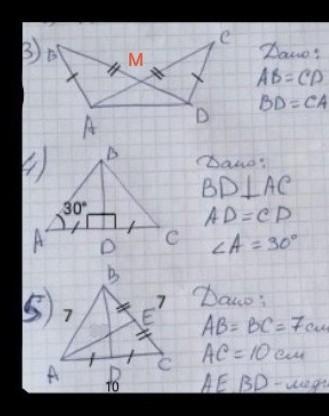 3) B M C
A D
Дано:
AB = CD
BD = CA
4) B
30°
A D C
Дано:
BD⊥AC
AD = CD
∠A = 30°
5) B
7 E 7
A D C
10
Дано:
AB = BC = 7 см
AC = 10 см
AE, BD –